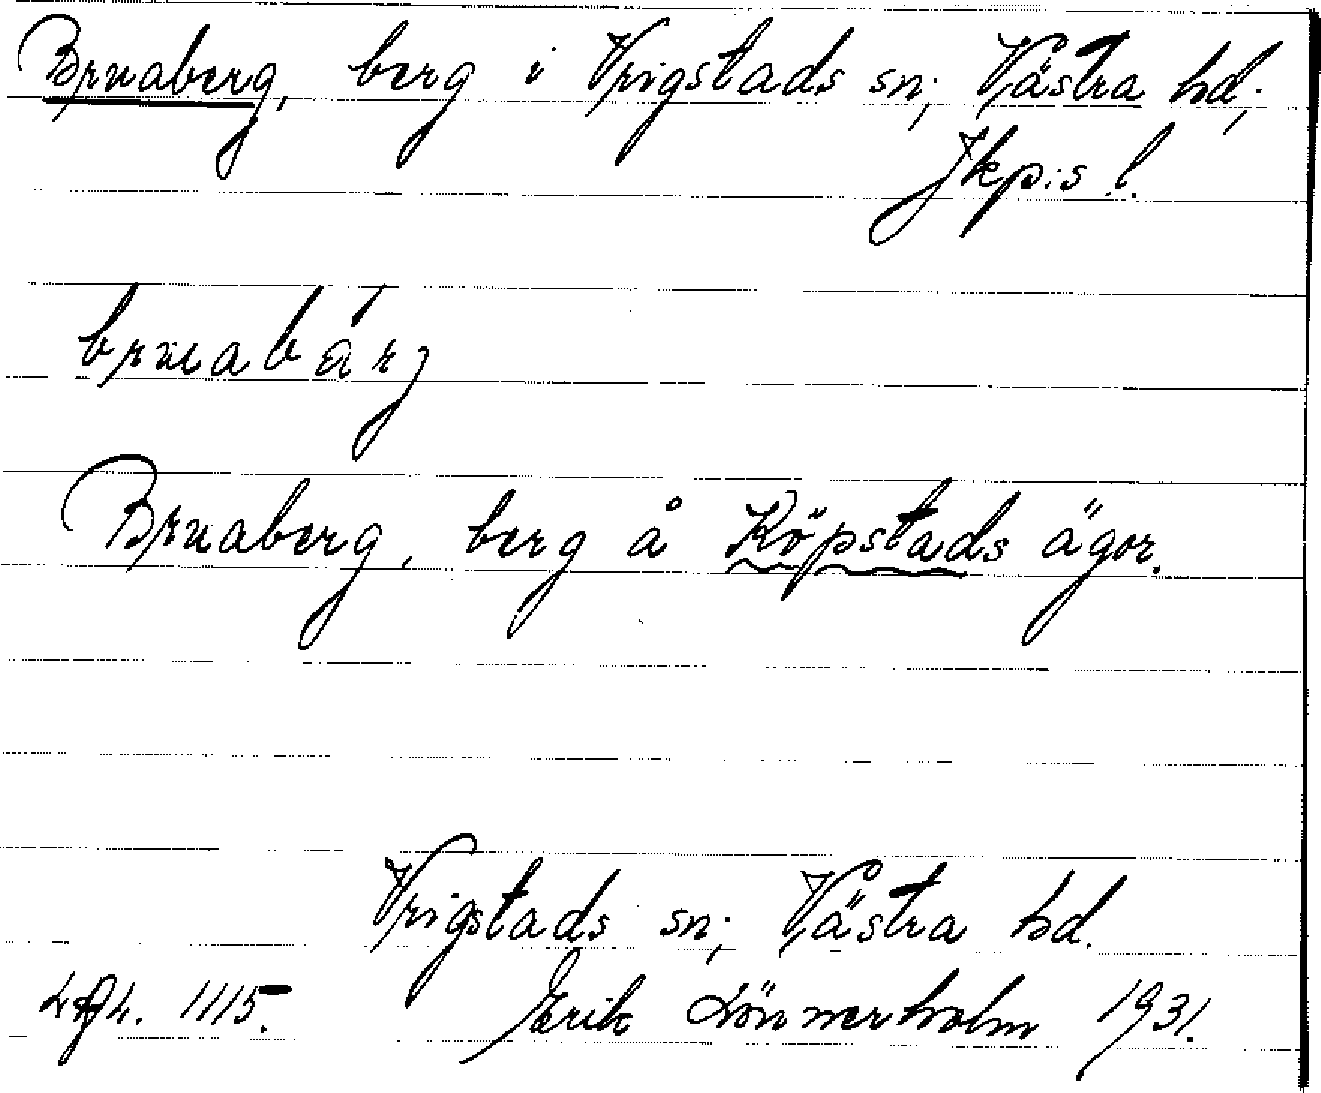 Bruaberg, berg i Vrigstads sn; Västra hd;
Jkp:s l.
bruabárj
Bruaberg, berg å Köpstads ägor.
Vrigstads sn; Västra hd.
1115. Erik Lönnerholm 1931.